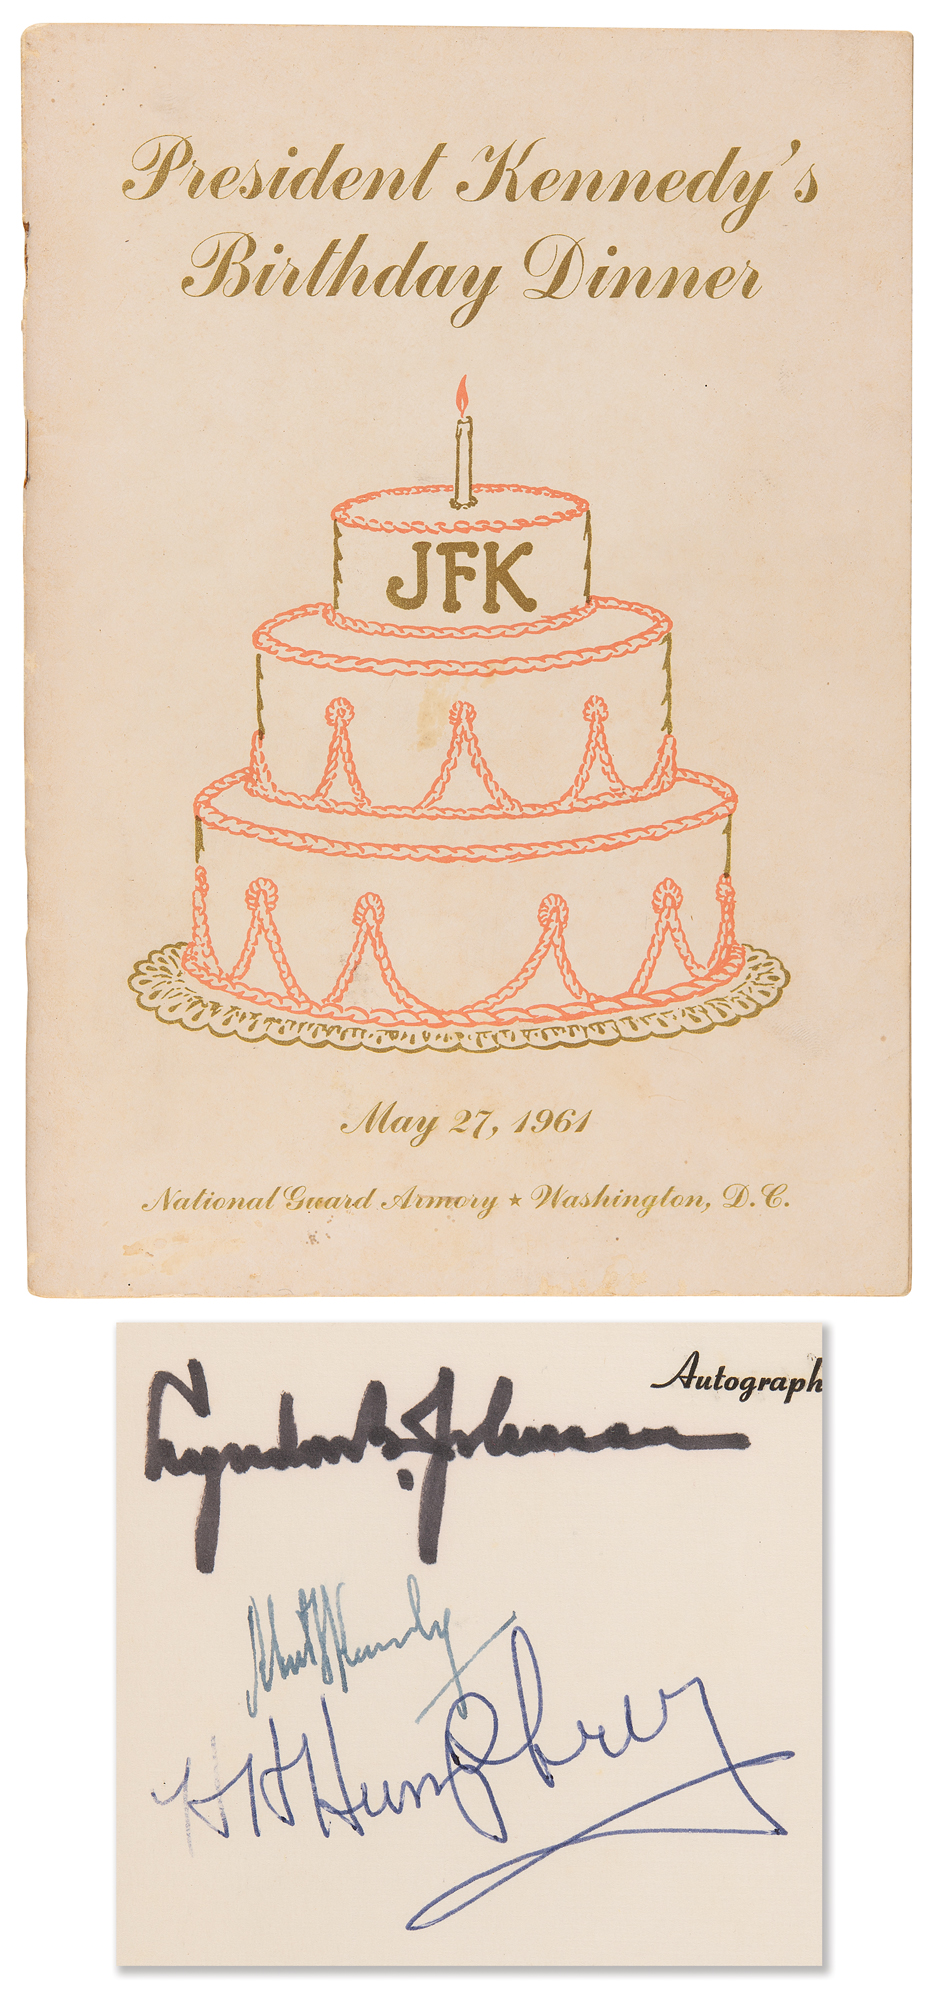 President Kennedy's
Birthday Dinner
JFK
May 27, 1961
National Guard Armory ★ Washington, D.C.
Autograph
Lyndon B. Johnson
Robt F Kennedy
H H Humphrey